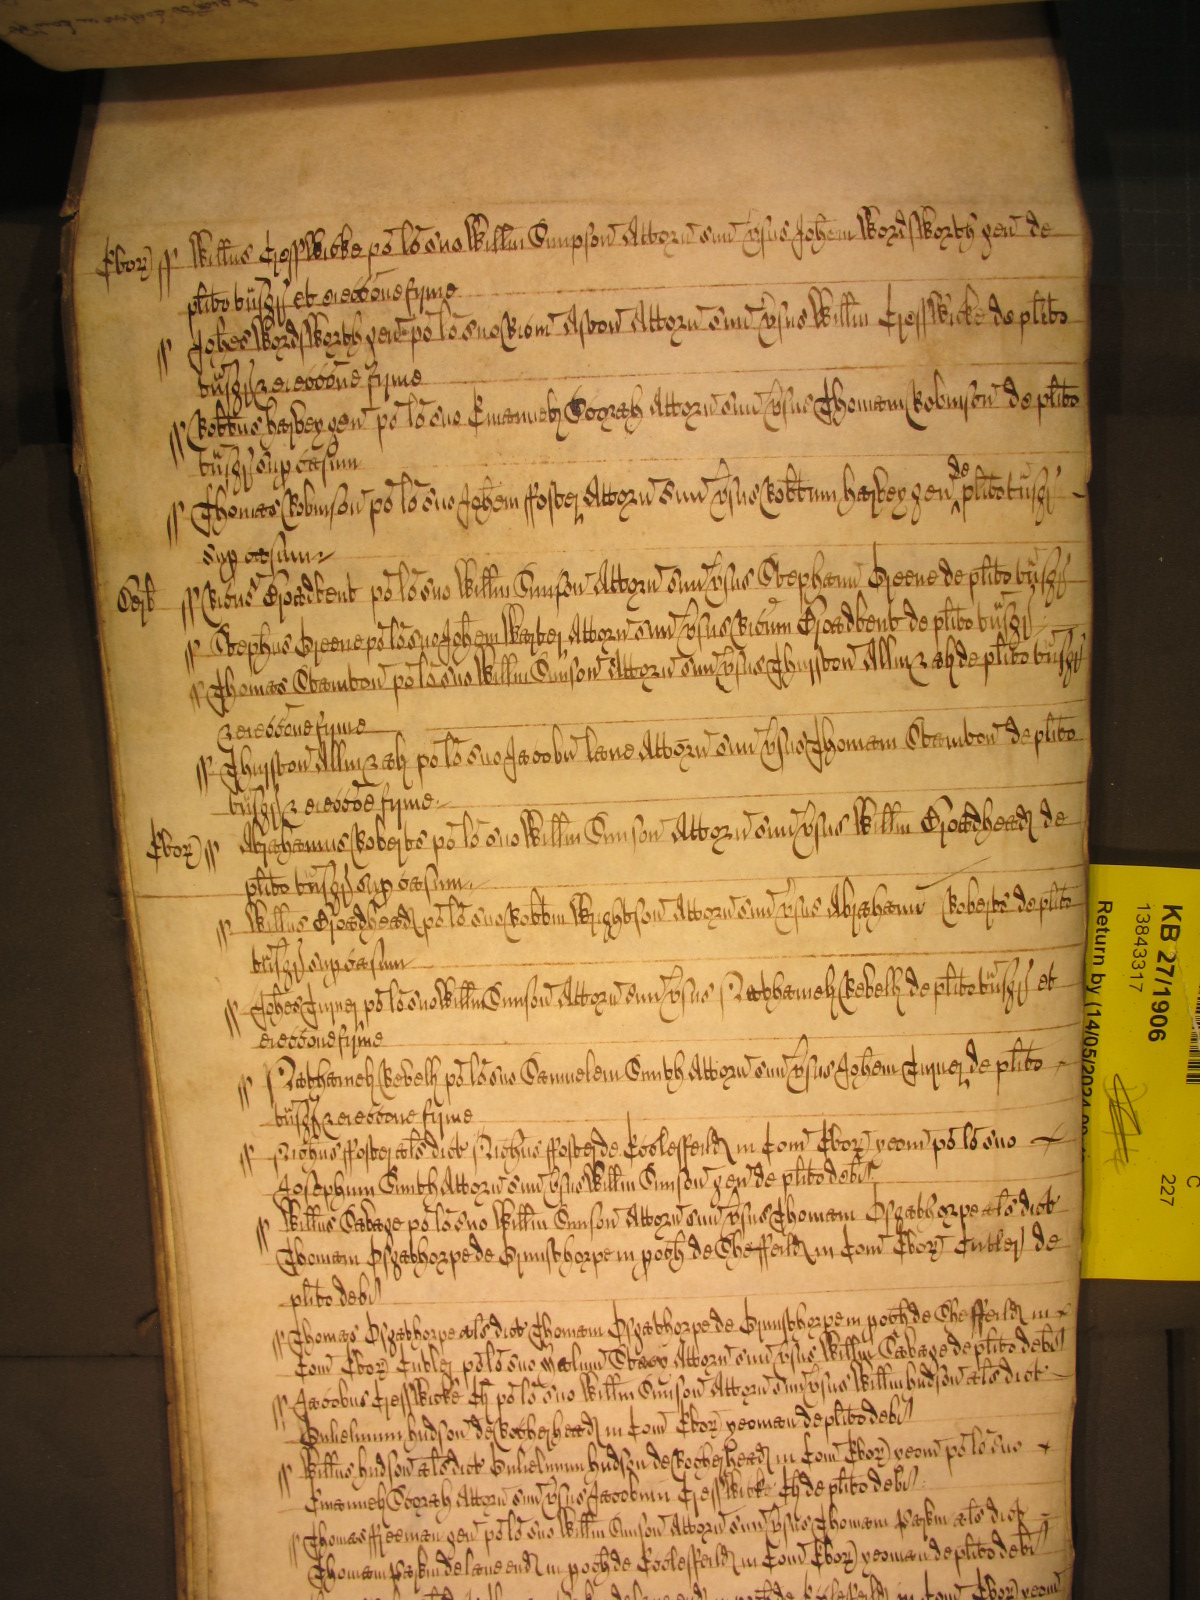 Ebor ss Willus Cresswicke po lo suo Willm Simpson Attorn suu vsus Johem Wordsworth gen de
plito tnsgr et eieccone firme
ss Johes Wordsworth gen po lo suo Ricm Aston Attorn suu vsus Willm Cresswicke de plito
tnsgr & eieccone firme
ss Robtus harvey gen po lo suo Emanuel Attorn suu vsus Thomam Robinson de plito
tnsgr sup casum
ss Thomas Robinson po lo suo Johem ffoster Attorn suu vsus Robtum harvey gen de plito tnsgr
sup casum
Derb ss Ricus Broadbent po lo suo Willm Simson Attorn suu vsus Stephanu Greene de plito tnsgr
ss Stephus Greene po lo suo Johem Attorn suu vsus Ricum Broadbent de plito tnsgr
ss Thomas Stainton po lo suo Willm Simson Attorn suu vsus Thurston Allin & al de plito tnsgr
& eieccone firme
ss Thurston Allin & al po lo suo Jacobu lane Attorn suu vsus Thomam Stainton de plito
tnsgr & eieccoe firme
Ebor ss Abrahamus Roberts po lo suo Willm Simson Attorn suu vsus Willm Broadhead de
plito tnsgr sup casum
ss Willus Broadhead po lo suo Robtm Wrightson Attorn suu vsus Abrahamu Roberts de plito
tnsgr sup casum
ss Johes Turner po lo suo Willm Simson Attorn suu vsus Nathaniel Revell de plito tnsgr et
eieccone firme
ss Nathaniel Revell po lo suo Samuelem Smith Attorn suu vsus Johem Turner de plito
tnsgr & eieccone firme
ss Nichus ffoster als dict Nichus ffoster de Ecclesfeild in Com Ebor yeom po lo suo
Josephum Smith Attorn suu vsus Willm Simson gen de plito debi
ss Willus Savage po lo suo Willm Simson Attorn suu vsus Thomam Osgathorpe als dict
Thomam Osgathorpe de Grimsthorpe in poch de Sheffeild in Com Ebor Cutler de
plito debi
ss Thomas Osgathorpe als dict Thomam Osgathorpe de Grimsthorpe in poch de Sheffeild in
Com Ebor Cutler po lo suo Attorn suu vsus Willm Savage de plito debi
ss Jacobus Cresswicke Cl po lo suo Willm Simson Attorn suu vsus Willm hudson als dict
Gulielmum hudson de Rotherhead in Com Ebor yeoman de plito debi
ss Willus hudson als dict Gulielmum hudson de Rotherhead in Com Ebor yeom po lo suo
Emanuel Attorn suu vsus Jacobum Cresswicke Cl de plito debi
ss Thomas ffreeman gen po lo suo Willm Simson Attorn suu vsus Thomam Paskin als dict
Thomam Paskin de lane end in poch de Ecclesfeild in Com Ebor yeoman de plito debi
KB 27/1906
13843317
Return by (14/05/2024
C
227